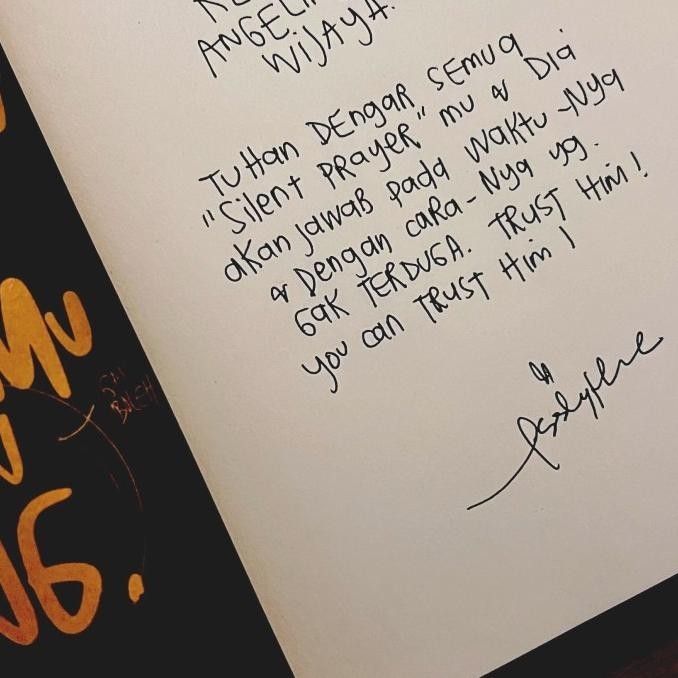 ANGELI
WIJAYA.
TUHAN DENGAR SEMUA
"SILENT PRAYER" MU & DIA
AKAN JAWAB PADA WAKTU-NYA
& DENGAN CARA-NYA YG.
GAK TERDUGA. TRUST HIM!
YOU CAN TRUST HIM!